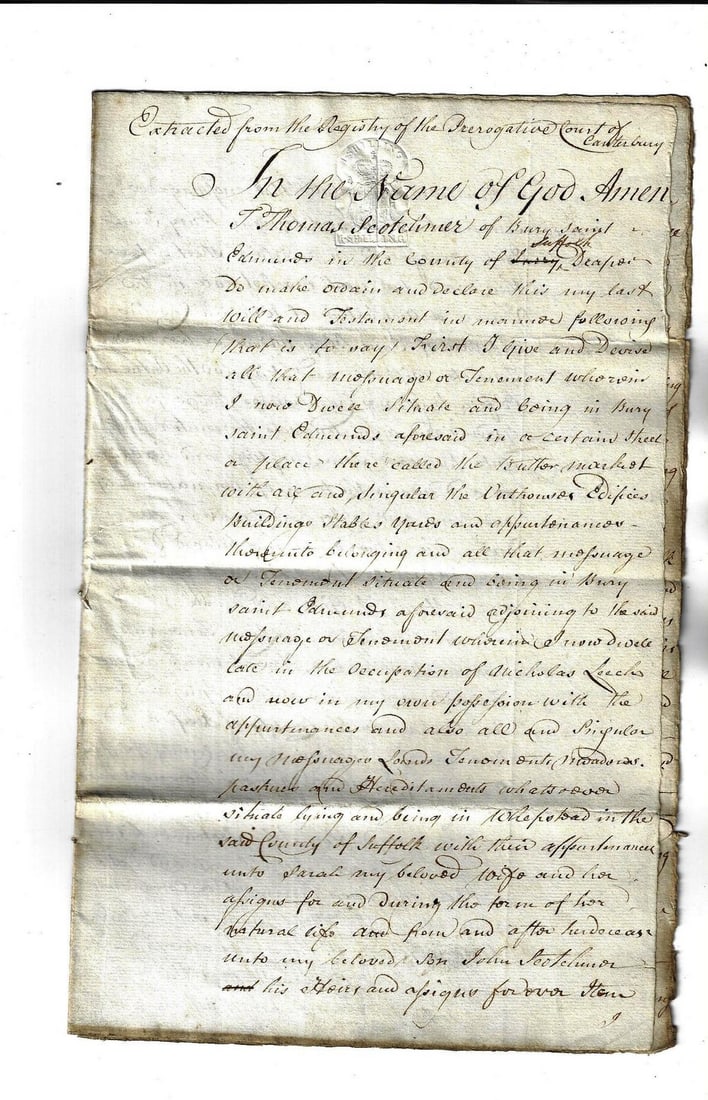 Extracted from the Registry of the Prerogative Court of
Canterbury
In the Name of God Amen
I Thomas Scotchmer of Bury saint
Edmunds in the County of Suffolk Draper
Do make ordain and declare this my last
Will and Testament in manner following
that is to say First I Give and Devise
all that messuage or Tenement wherein
I now Dwell Situate and being in Bury
saint Edmunds aforesaid in a certain street
or place there called the Butter market
with all and singular the Outhouses Edifices
Buildings Stables Yards and appurtenances
thereunto belonging and all that messuage
or Tenement situate and being in Bury
saint Edmunds aforesaid adjoining to the said
messuage or Tenement wherein I now Dwell
late in the Occupation of Nicholas Leech
and now in my own possession with the
appurtinances and also all and Singular
my Messuages Lands Tenements Meadows
pastures and Hereditaments whatsoever
situate lying and being in Whepstead in the
said County of Suffolk with their appurtenances
unto Sarah my beloved Wife and her
assigns for and during the term of her
natural life and from and after her decease
unto my beloved Son John Scotchmer
and his Heirs and assigns for ever Item
I